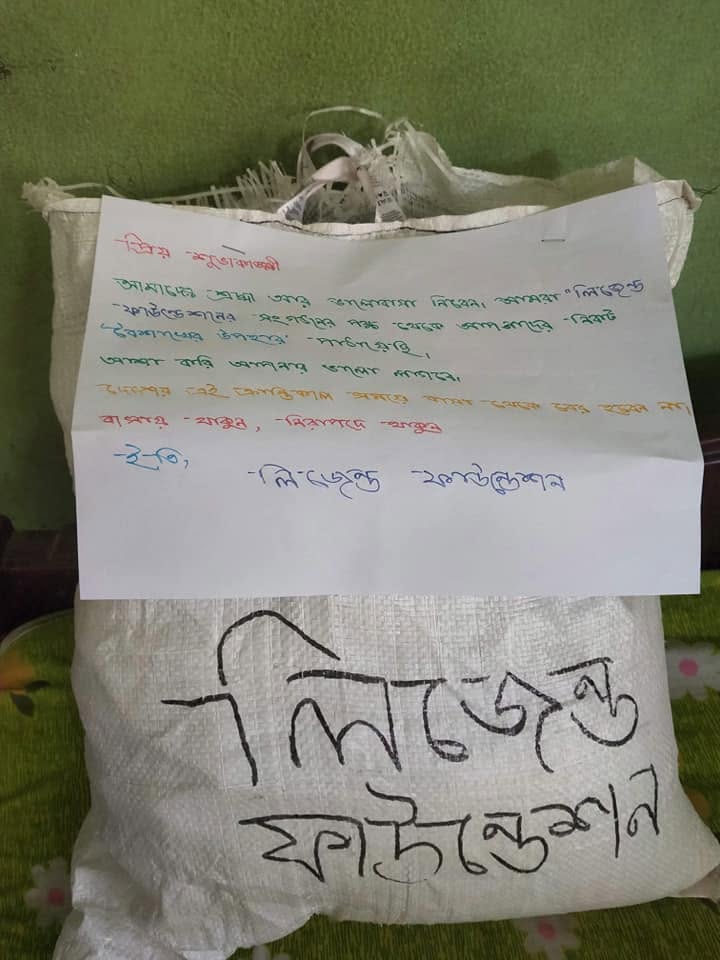 প্রিয় শুভাকাঙ্ক্ষী
আমাদের শ্রদ্ধা আর ভালোবাসা নিবেন। আমরা "লিজেন্ড
ফাউন্ডেশনের সংগঠনের পক্ষ থেকে আপনাদের নিকট
"বৈশাখের উপহার" পাঠিয়েছি,
আশা করি আপনার ভালো লাগবে।
দেশের এই ক্রান্তিকাল সময়ে বাসা থেকে বের হবেন না।
বাসায় থাকুন, নিরাপদে থাকুন
ই-তি,
লিজেন্ড ফাউন্ডেশন
লিজেন্ড
ফাউন্ডেশন